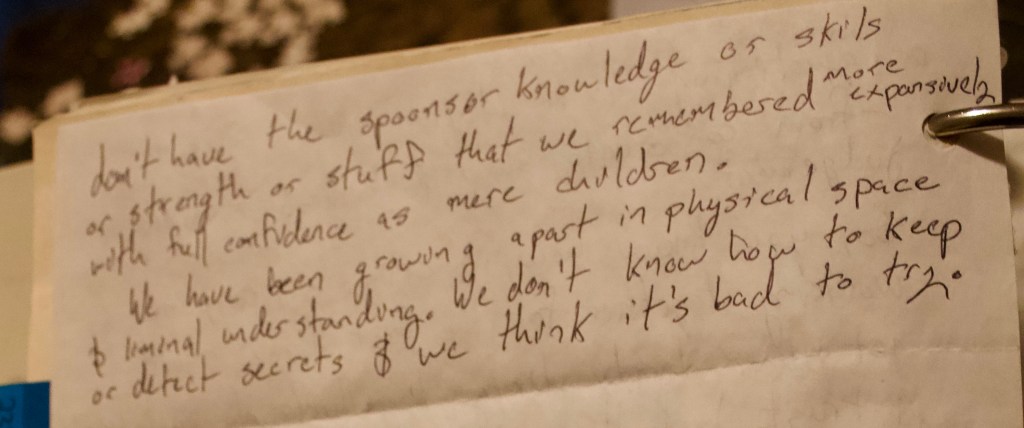 don't have the spoonsor knowledge or skils
or strength or stuff that we remembered more expansively
with full confidence as mere children.
We have been growing apart in physical space
& liminal understanding. We don't know how to keep
or detect secrets & we think it's bad to try.